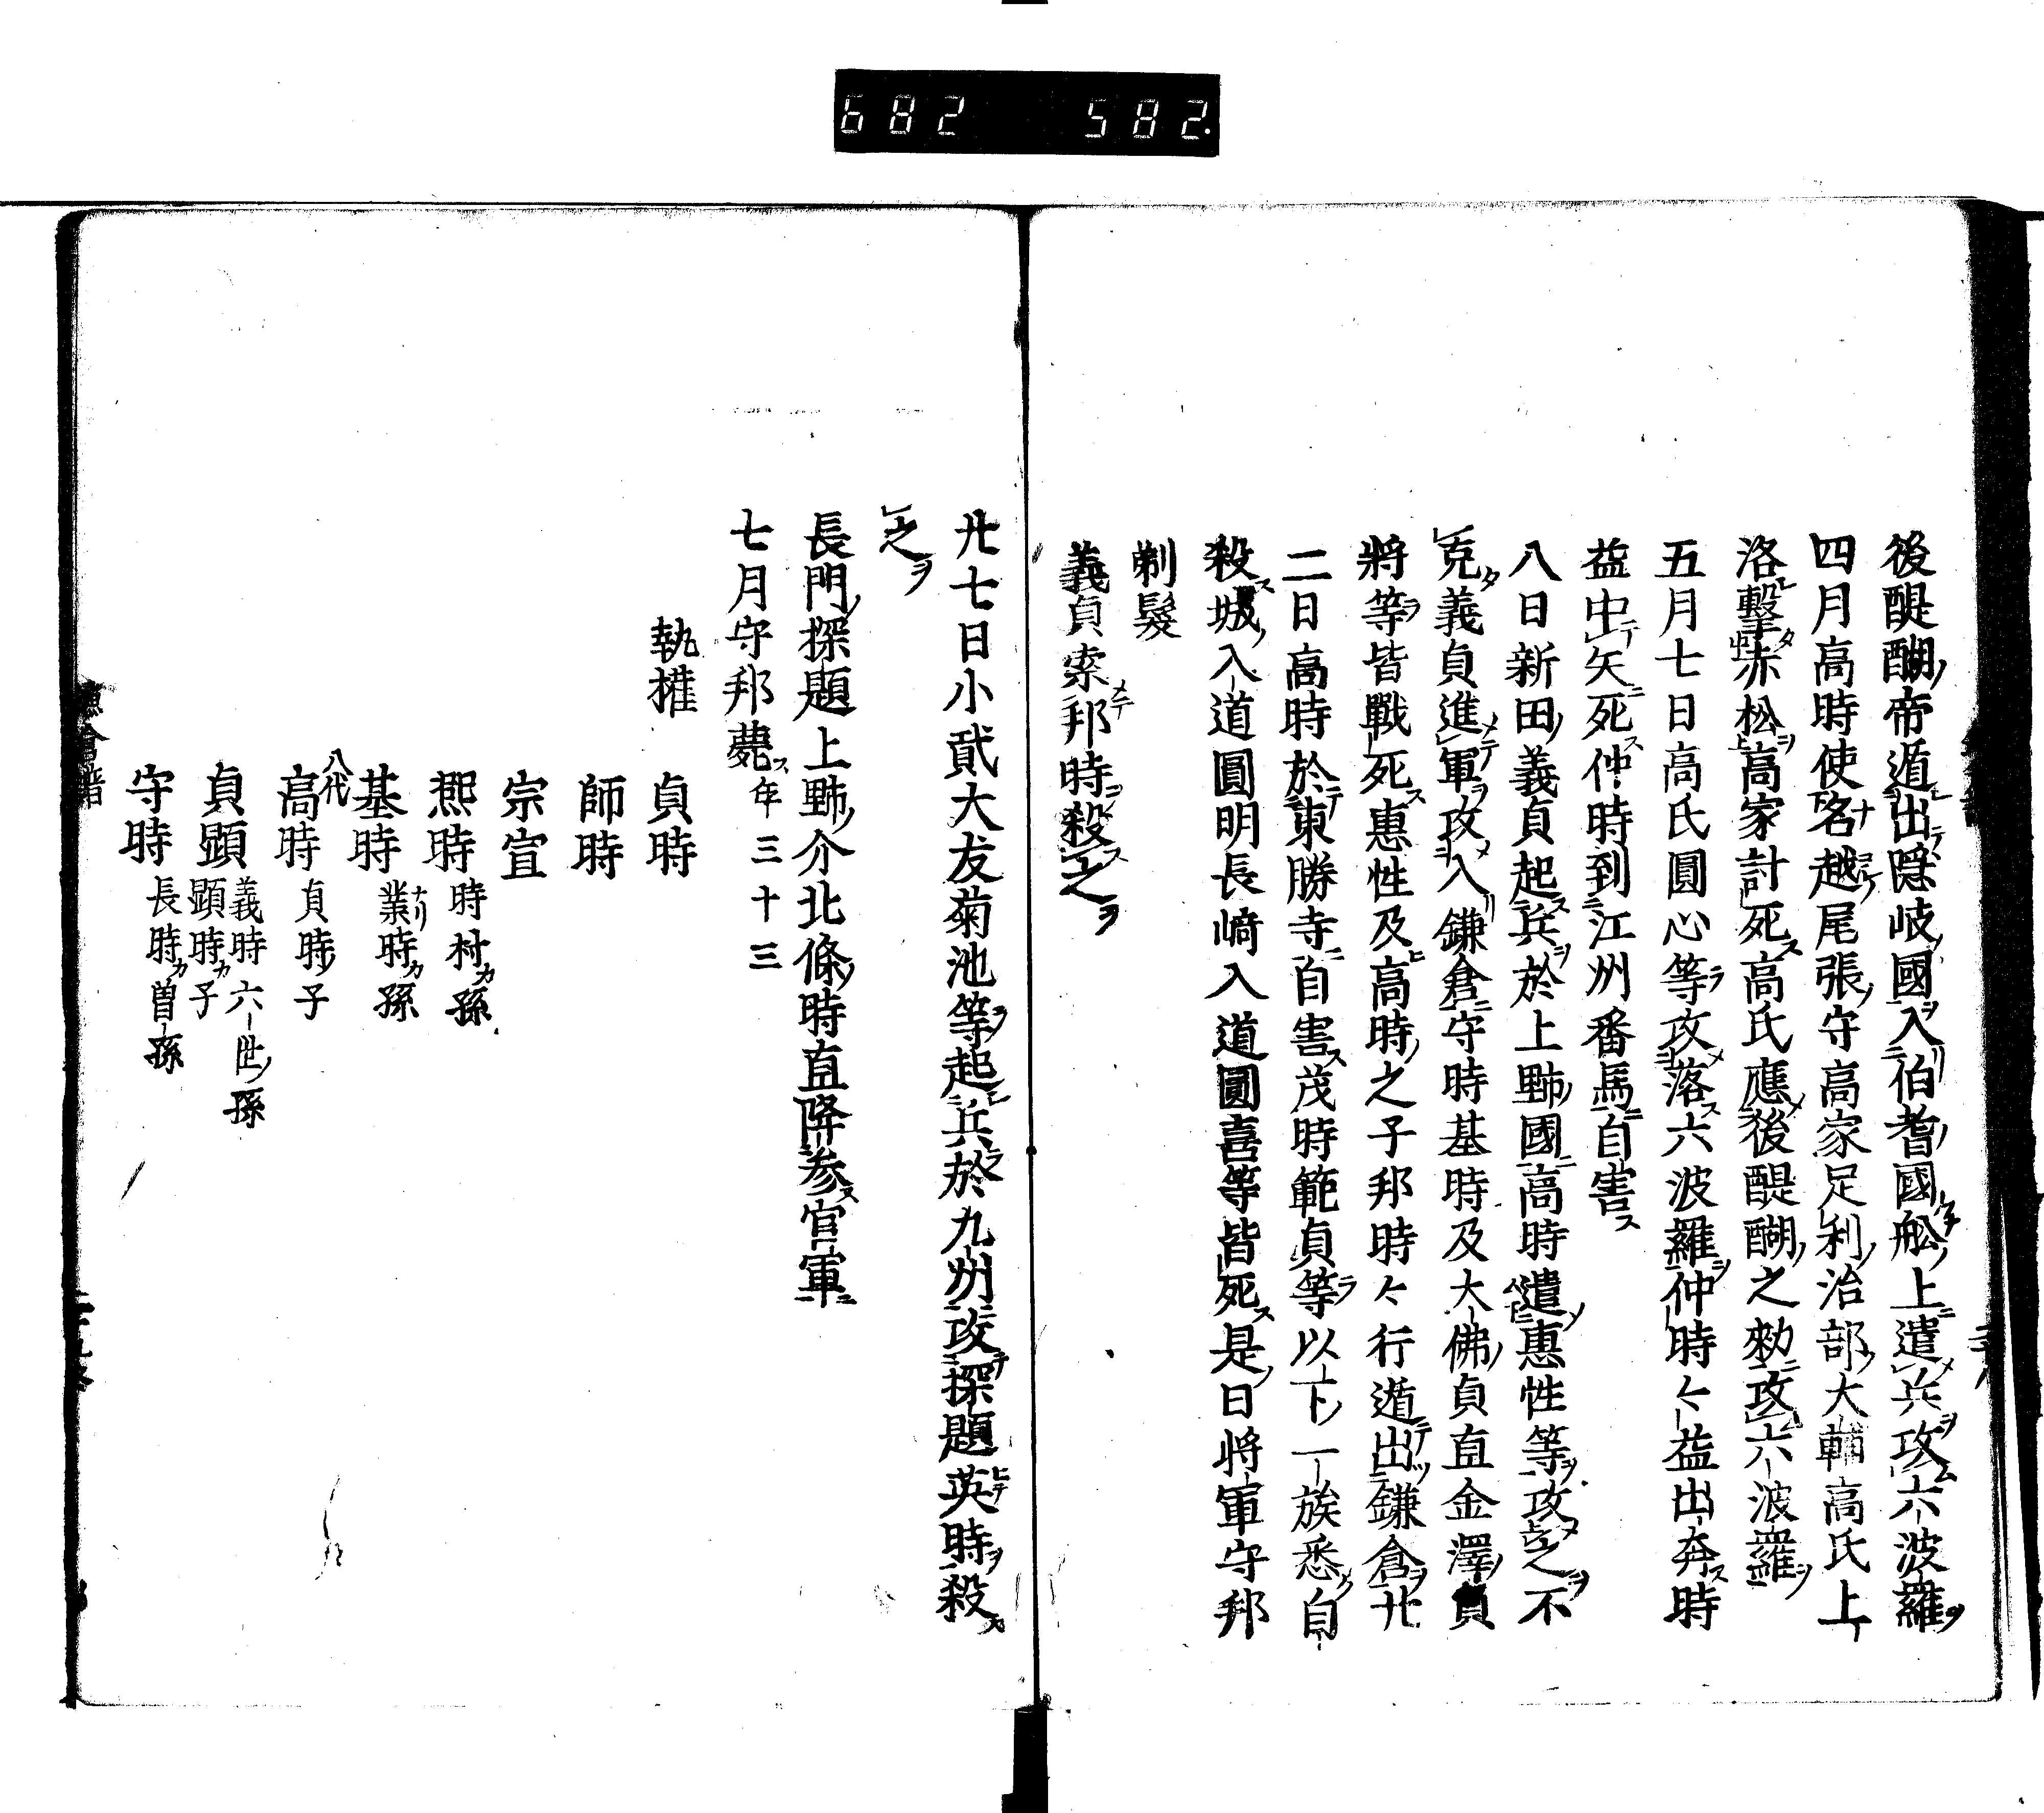 682 582.
後醍醐帝遁出隠岐國入伯耆國舩上遣兵攻六波羅
四月高時使名越尾張守高家足利治部大輔高氏上
洛擊赤松高家計死高氏應後醍醐之勅攻六波羅
五月七日高氏圓心等攻落六波羅仲時々益出奔時
益中矢死仲時到江州番馬自害
八日新田義貞起兵於上野國高時遣惠性等攻之不
克義貞進軍攻入鎌倉守時基時及大佛貞直金澤貞
將等皆戰死惠性及高時之子邦時々行遁出鎌倉廿
二日高時於東勝寺自害茂時範貞等以下一族悉自
殺城入道圓明長﨑入道圓喜等皆死是日將軍守邦
剃髮
義貞索邦時殺之
廿七日小貳大友菊池等起兵於九州攻探題英時殺
之
長門探題上野介北條時直降参官軍
七月守邦薨年三十三
執權 貞時
師時
宗宣
凞時 時村カ孫
基時 業時カ孫
八代 高時 貞時ノ子
貞顕 義時六世ノ孫 顕時カ子
守時 長時カ曽孫